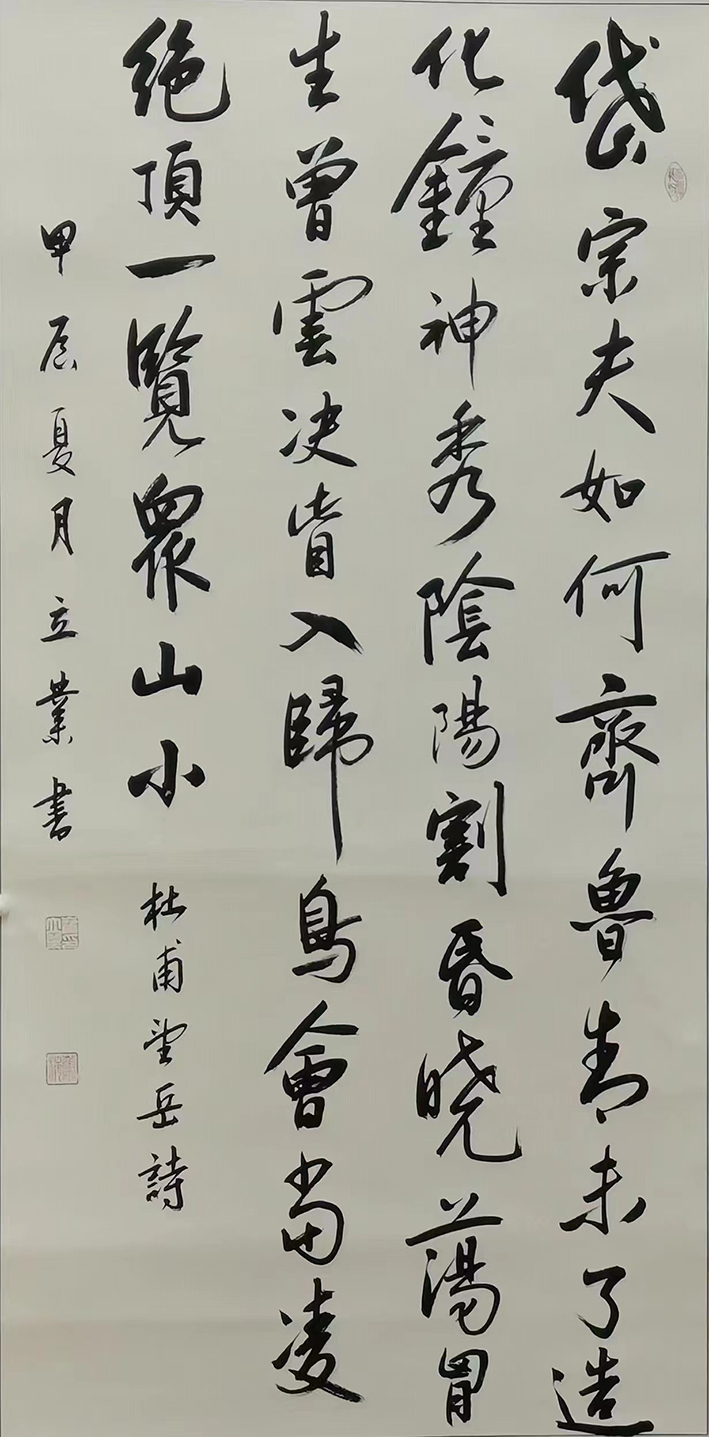 岱宗夫如何齊魯青未了造
化鐘神秀陰陽割昏晓蕩胷
生曾雲决眥入歸鳥會當凌
絕頂一覽眾山小 杜甫望岳詩
甲辰夏月立業書